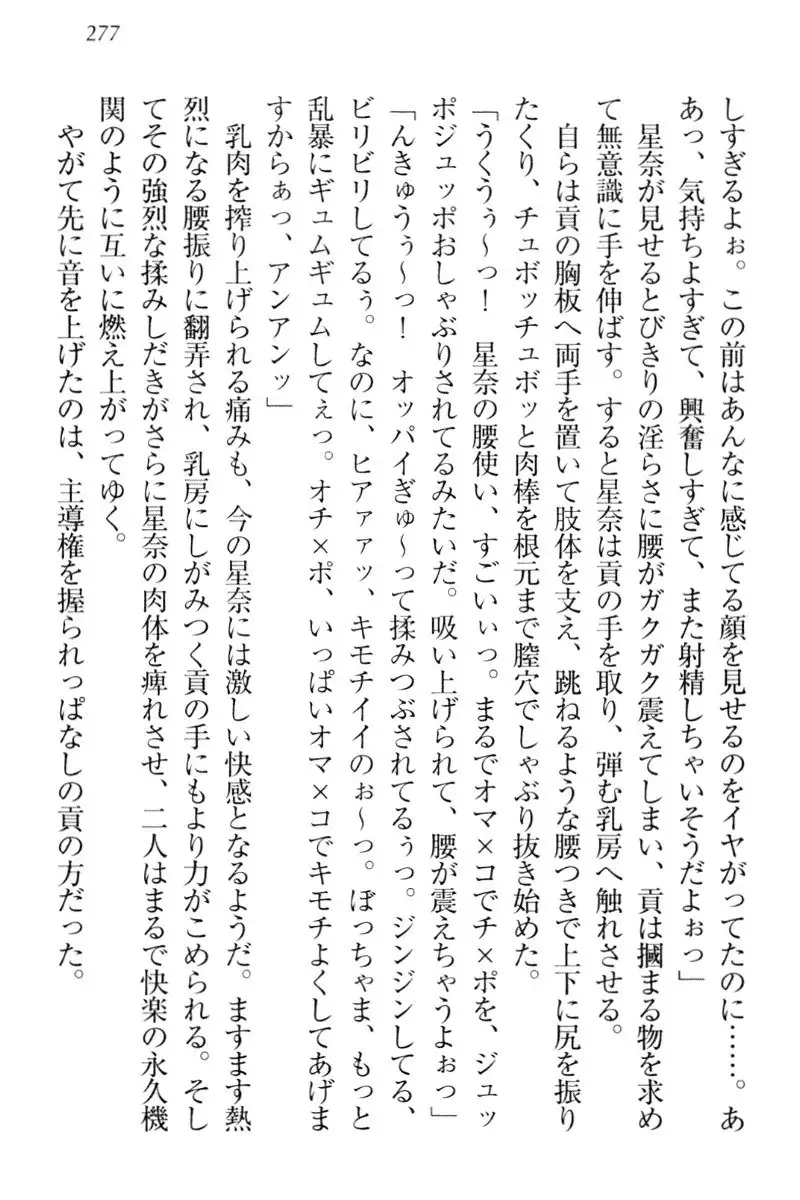 277
しすぎるよぉ。この前はあんなに感じてる顔を見せるのをイヤがってたのに……。あ
あっ、気持ちよすぎて、興奮しすぎて、また射精しちゃいそうだよぉっ」
星奈が見せるとびきりの淫らさに腰がガクガク震えてしまい、貢は摑まる物を求め
て無意識に手を伸ばす。すると星奈は貢の手を取り、弾む乳房へ触れさせる。
自らは貢の胸板へ両手を置いて肢体を支え、跳ねるような腰つきで上下に尻を振り
たくり、チュボッチュボッと肉棒を根元まで膣穴でしゃぶり抜き始めた。
「うくうぅ～っ！　星奈の腰使い、すごいぃっ。まるでオマ×コでチ×ポを、ジュッ
ポジュッポおしゃぶりされてるみたいだ。吸い上げられて、腰が震えちゃうよぉっ」
「んきゅうぅ～っ！　オッパイぎゅ～って揉みつぶされてるぅっ。ジンジンしてる、
ビリビリしてるぅ。なのに、ヒアァァッ、キモチイイのぉ～っ。ぼっちゃま、もっと
乱暴にギュムギュムしてぇっ。オチ×ポ、いっぱいオマ×コでキモチよくしてあげま
すからぁっ、アンアンッ」
乳肉を搾り上げられる痛みも、今の星奈には激しい快感となるようだ。ますます熱
烈になる腰振りに翻弄され、乳房にしがみつく貢の手にもより力がこめられる。そし
てその強烈な揉みしだきがさらに星奈の肉体を痺れさせ、二人はまるで快楽の永久機
関のように互いに燃え上がってゆく。
やがて先に音を上げたのは、主導権を握られっぱなしの貢の方だった。